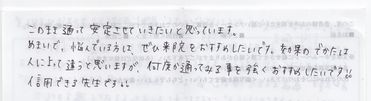 このまま通って安定させていきたいと思っています。
めまいで、悩んでいる方は、ぜひ来院をおすすめしたいです。効果のでかたは、
人によって違うと思いますが、何度か通ってみる事を強くおすすめしたいです。
信用できる先生です。